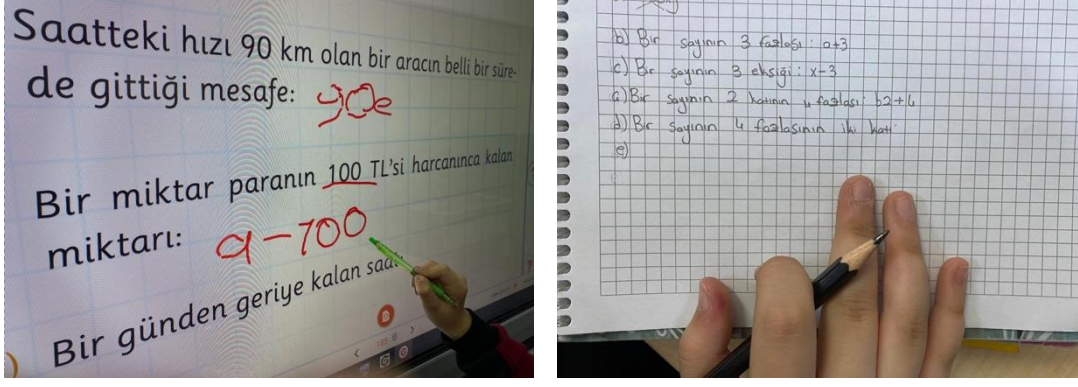 Saatteki hızı 90 km olan bir aracın belli bir süre-
de gittiği mesafe: 90e
Bir miktar paranın 100 TL'si harcanınca kalan
miktarı: a-100
Bir günden geriye kalan saa
b) Bir sayının 3 fazlası: a+3
c) Bir sayının 3 eksiği: x-3
ç) Bir sayının 2 katının 4 fazlası: b2+4
d) Bir sayının 4 fazlasının iki katı:
e)